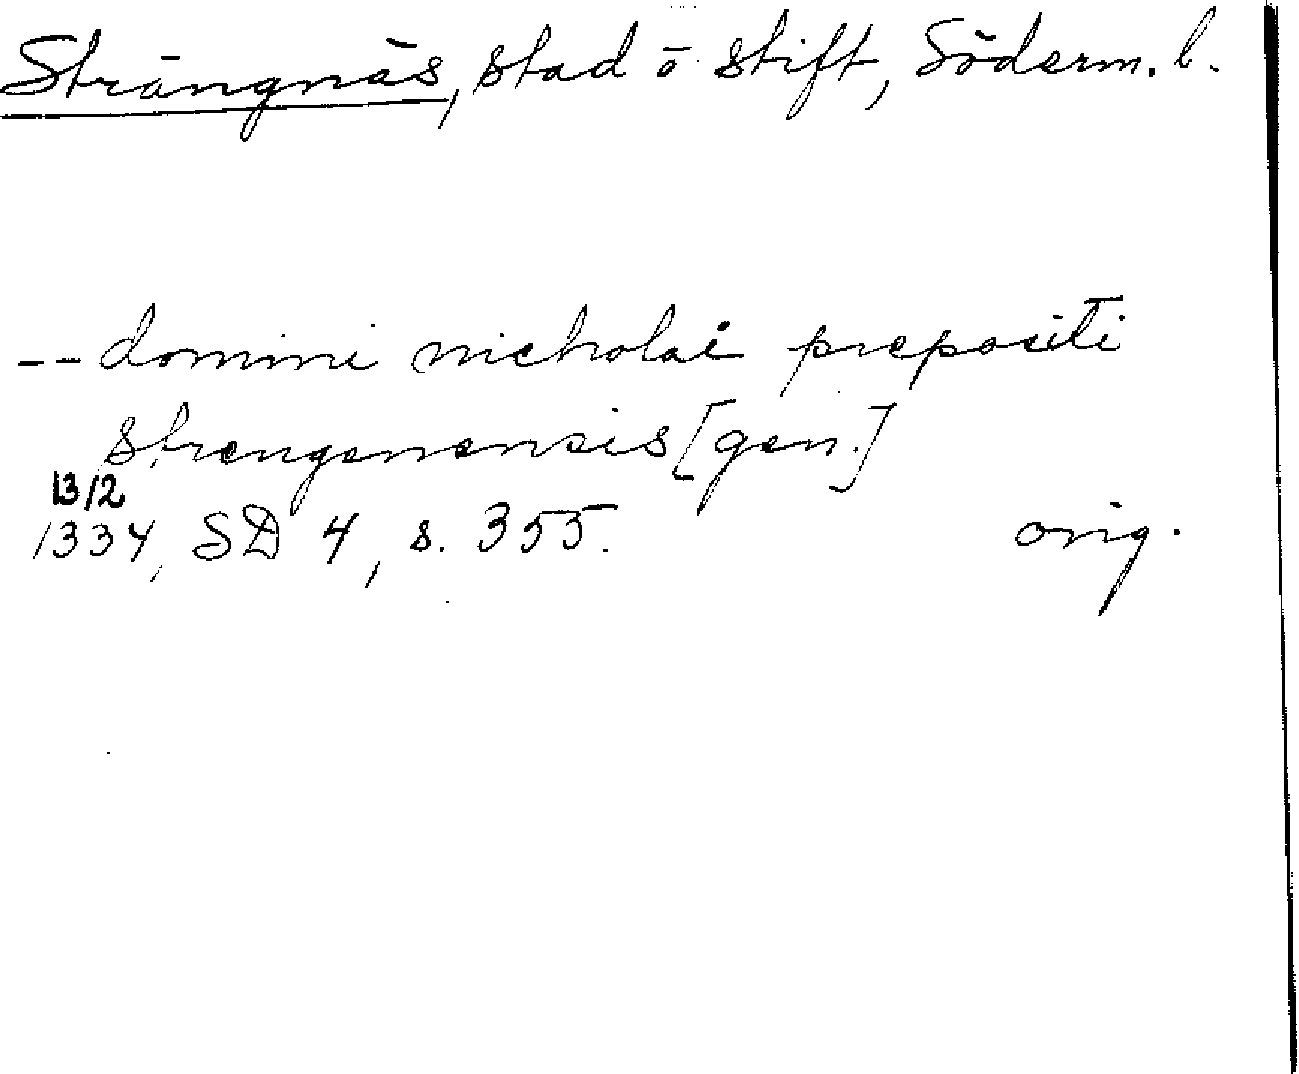 Strängnäs, stad o stift, Söderm. l.
-- domini nicholai prepositi
strengenensis [gen.]
13/2
1334, SD 4, s. 355. orig.